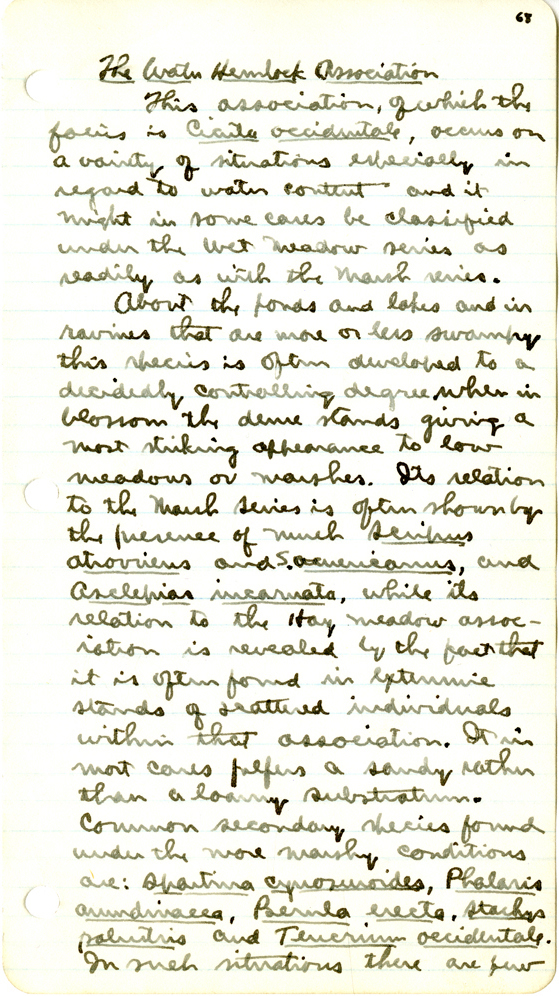 68
The Water Hemlock Association
This association, of which the
focus is Cicuta occidentale, occurs on
a vairity of situations especially in
regard to water content and it
might in some cases be classified
under the Wet Meadow series as
readily as with the Marsh series.
About the ponds and lakes and in
ravines that are more or less swampy
this species is often developed to a
decidedly controlling degree, when in
blossom the dense stands giving a
most striking appearance to low
meadows or marshes. Its relation
to the Marsh Series is often shown by
the presence of much Scirpus
atrovirens and S. americanus, and
Asclepias incarnata, while its
relation to the Hay meadow assoc-
iation is revealed by the fact that
it is often found in extensive
stands of scattered individuals
within that association. It in
most cases prefers a sandy rather
than a loamy substratum.
Common secondary species found
under the more marshy conditions
are: Spartina cynosuroides, Phalaris
arundinacea, Berula erecta, Stachys
palustris and Teucrium occidentale.
In such situations there are few